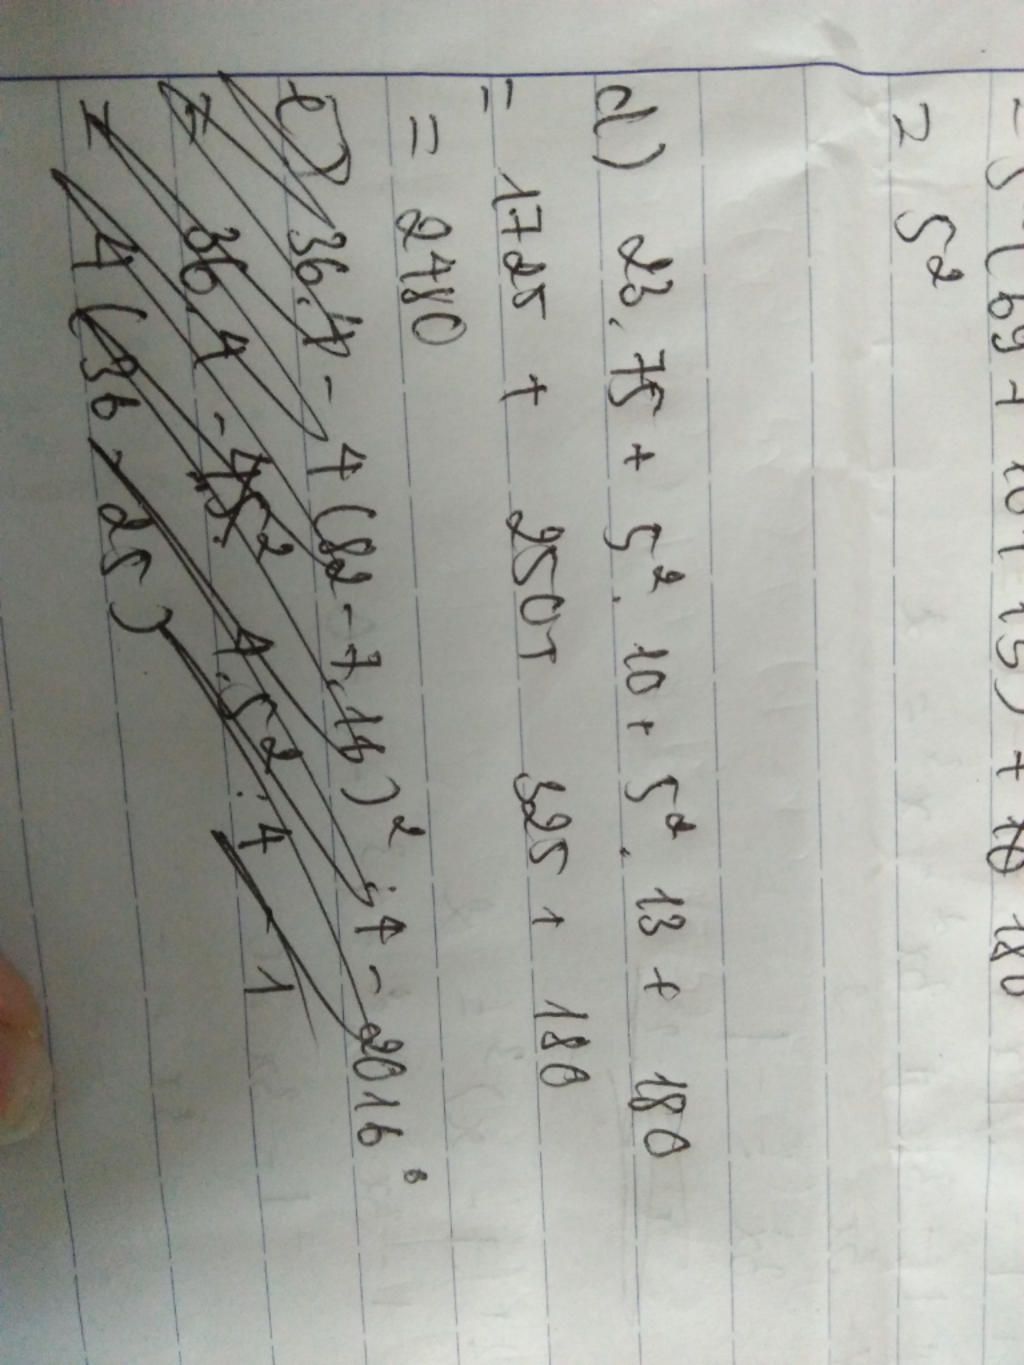 = 5² (69 + 10 + 13) + 180
= 5²
d) 23.75 + 5². 10 + 5². 13 + 180
= 1725 + 250 + 325 + 180
= 2480
e) 36.4 - 4(82 - 7.16)² : 4 - 2016⁰
= 36.4 - 4.5² : 4 - 1
= 4(36 - 25)